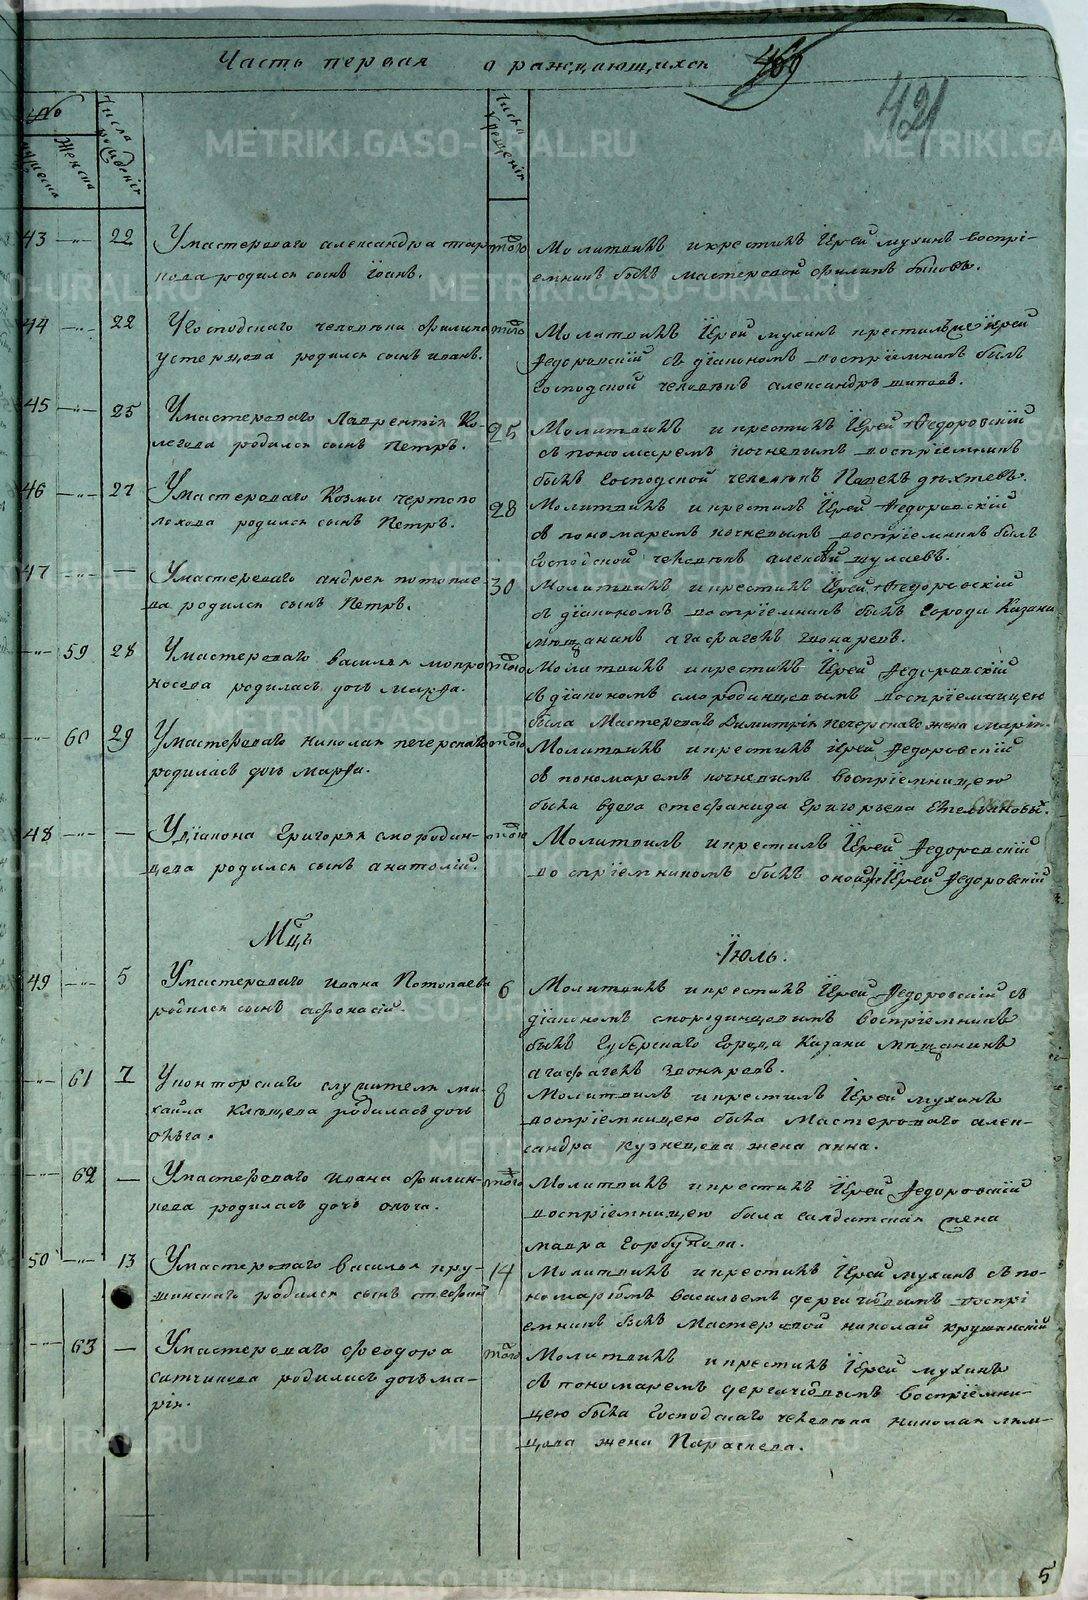 Часть первая о раждающихся 469
421
№
мужеска
женска
Числа рожденiя
Числа крещенiя
43 —"— 22 У мастероваго александра стар-
кова родился сынъ Iоанъ.
того Молитвилъ и крестилъ Iерей мухинъ воспрi-
емникъ былъ мастеровой филипъ быковъ.
44 —"— 22 У Господскаго человѣка филипа
устерцева родился сынъ иванъ.
того Молитвилъ Iерей мухинъ крестилъ же Iерей
Федоровскiй съ дiакономъ воспрiемникъ былъ
Господской человѣкъ александръ шиповъ.
45 —"— 25 У мастероваго Лаврентiя Ко-
легова родился сынъ Петръ.
25 Молитвилъ и крестилъ Iерей Федоровскiй
съ пономаремъ кочневымъ воспрiемникъ
былъ Господской человѣкъ Павелъ дѣхтевъ.
46 —"— 27 У мастероваго Козмы чертопо
лохова родился сынъ Петръ.
28 Молитвилъ и крестилъ Iерей Федоровскiй
съ пономаремъ кочневымъ воспрiемникъ былъ
Господской человѣкъ алексѣй шулаевъ.
47 —"— — У мастероваго андрея потопае-
ва родился сынъ Петръ.
30 Молитвилъ и крестилъ Iерей Федоровскiй
съ дiакономъ воспрiемникъ былъ города Казани
мѣщанинъ агафагелъ звонаревъ.
—"— 59 28 У мастероваго василья мокро
носова родилась дочь Марѳа.
того Молитвилъ и крестилъ Iерей Федоровскiй
съ дiакономъ смородинцовымъ воспрiемницею
была Мастероваго Димитрiя печерскаго жена Марiя.
—"— 60 29 У мастероваго николая печерскаго
родилась дочь марѳа.
того Молитвилъ и крестилъ Iерей Федоровскiй
съ пономаремъ кочневымъ воспрiемницею
была вдова стефанида Григорьева Емельяновыхъ.
48 —"— — У дiакона Григорiя смородин-
цева родился сынъ анатолiй.
того Молитвилъ и крестилъ Iерей Федоровскiй
воспрiемникомъ былъ оной Iерей Федоровскiй
Мцъ Iюль.
49 —"— 5 У мастероваго ивана Потопаева
родился сынъ афонасiй.
6 Молитвилъ и крестилъ Iерей Федоровскiй съ
дiакономъ смородинцовымъ воспрiемникъ
былъ Губернскаго Города Казани мѣщанинъ
агафагелъ звонаревъ.
—"— 61 7 У конторскаго служителя ми-
хайла Клюцева родилась дочь
ольга.
8 Молитвилъ и крестилъ Iерей мухинъ
воспрiемницею была Мастероваго алек-
сандра кузнецова жена анна.
—"— 62 — У мастероваго ивана филин-
кова родилась дочь ольга.
того Молитвилъ и крестилъ Iерей Федоровскiй
воспрiемницею была салдатская жена
мавра Горбунова.
50 —"— 13 У мастероваго василья кру-
шинскаго родился сынъ стефанъ
14 Молитвилъ и крестилъ Iерей мухинъ съ по-
номарiомъ васильемъ дергачiовымъ воспрi
емникъ былъ Мастеровой николай крушинскiй
—"— 63 — У мастероваго феодора
ситчикова родилась дочь ма-
рiя.
того Молитвилъ и крестилъ Iерей мухинъ
съ пономаремъ дергачiовымъ воспрiемни-
цею была Господскаго человѣка николая лям-
цова жена Параскева.
5
METRIKI.GASO-URAL.RU